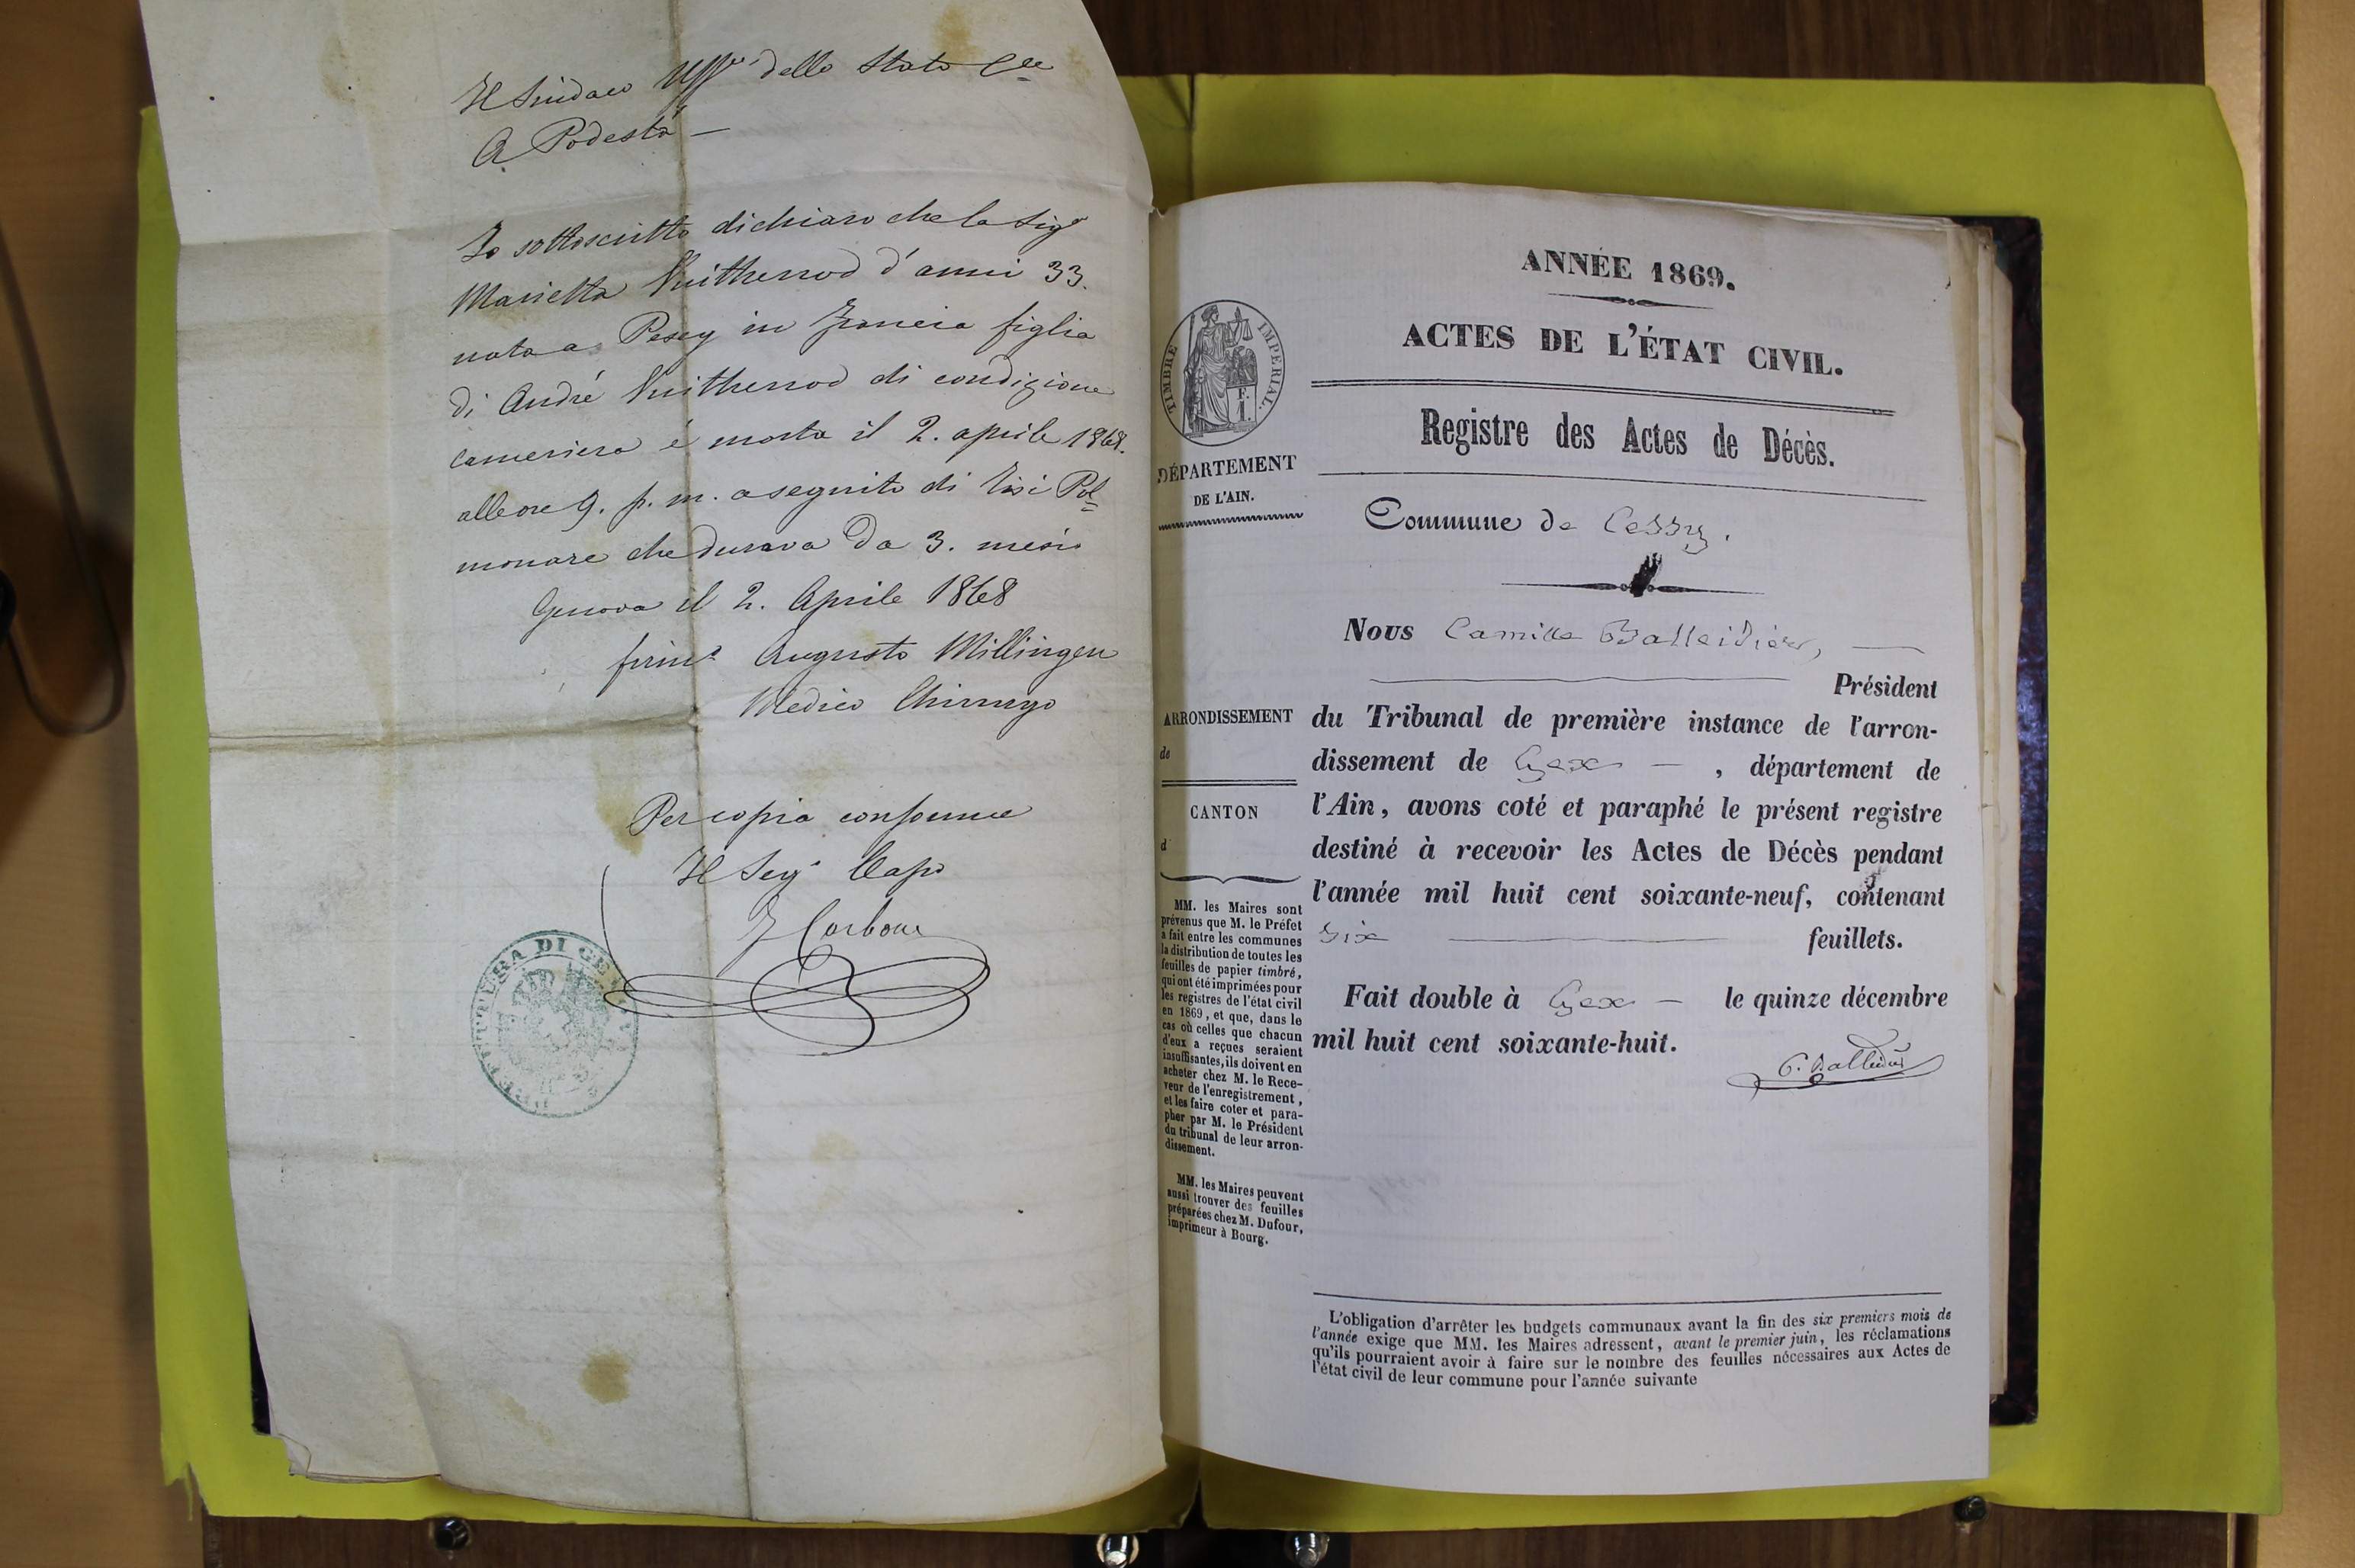 Il Sindaco Uff.le dello Stato C.le
A Podestà —
Io sottoscritto dichiaro che la Sig.a
Marietta Vuitherrod d'anni 33.
nata a Pesey in Francia figlia
di André Vuitherrod di condizione
cameriera é morta il 2. aprile 1868.
alle ore 9. p. m. a seguito di Tisi Pol=
monare che durava da 3. mesi
Genova il 2. Aprile 1868
firm.o Augusto Millingen
Medico Chirurgo
Per copia conforme
Il Seg.o Capo
F Carbone
PREFETTURA DI GENOVA
ANNÉE 1869.
ACTES DE L'ÉTAT CIVIL.
TIMBRE IMPERIAL.
F.
1.
Registre des Actes de Décès.
DÉPARTEMENT
DE L'AIN.
Commune de Cessy.
Nous Camille Balleidier,
Président
ARRONDISSEMENT
de
du Tribunal de première instance de l'arron-
dissement de Gex — , département de
l'Ain, avons coté et paraphé le présent registre
destiné à recevoir les Actes de Décès pendant
l'année mil huit cent soixante-neuf, contenant
six feuillets.
Fait double à Gex — le quinze décembre
mil huit cent soixante-huit.
C. Balleidier
CANTON
d
MM. les Maires sont
prévenus que M. le Préfet
a fait entre les communes
la distribution de toutes les
feuilles de papier timbré,
qui ont été imprimées pour
les registres de l'état civil
en 1869, et que, dans le
cas où celles que chacun
d'eux a reçues seraient
insuffisantes, ils doivent en
acheter chez M. le Rece-
veur de l'enregistrement,
et les faire coter et para-
pher par M. le Président
du tribunal de leur arron-
dissement.
MM. les Maires peuvent
aussi trouver des feuilles
préparées chez M. Dufour,
imprimeur à Bourg.
L'obligation d'arrêter les budgets communaux avant la fin des six premiers mois de
l'année exige que MM. les Maires adressent, avant le premier juin, les réclamations
qu'ils pourraient avoir à faire sur le nombre des feuilles nécessaires aux Actes de
l'état civil de leur commune pour l'année suivante